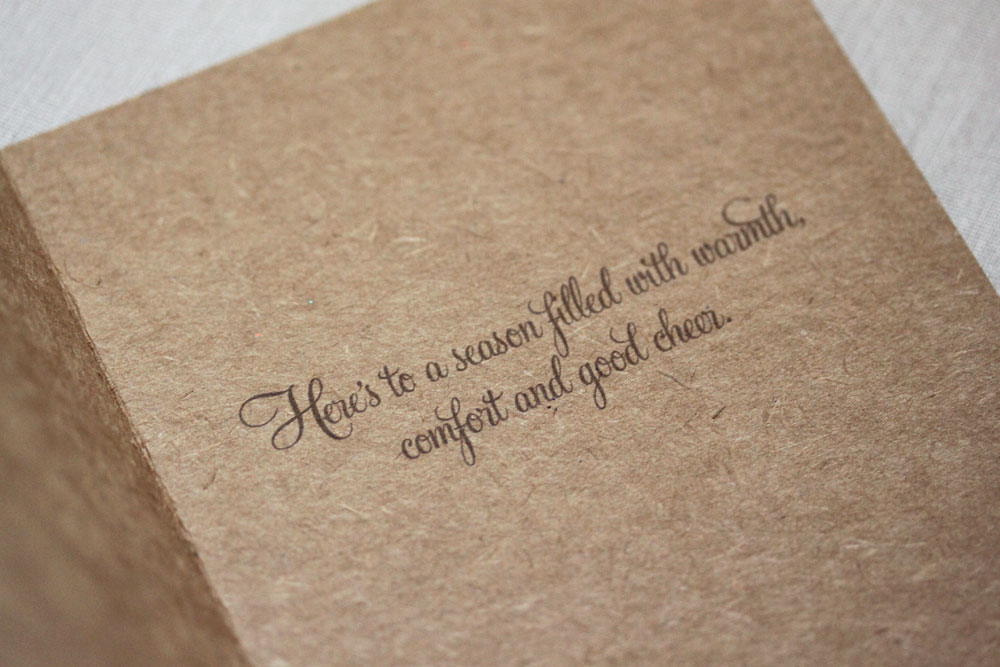 Here's to a season filled with warmth,
comfort and good cheer.